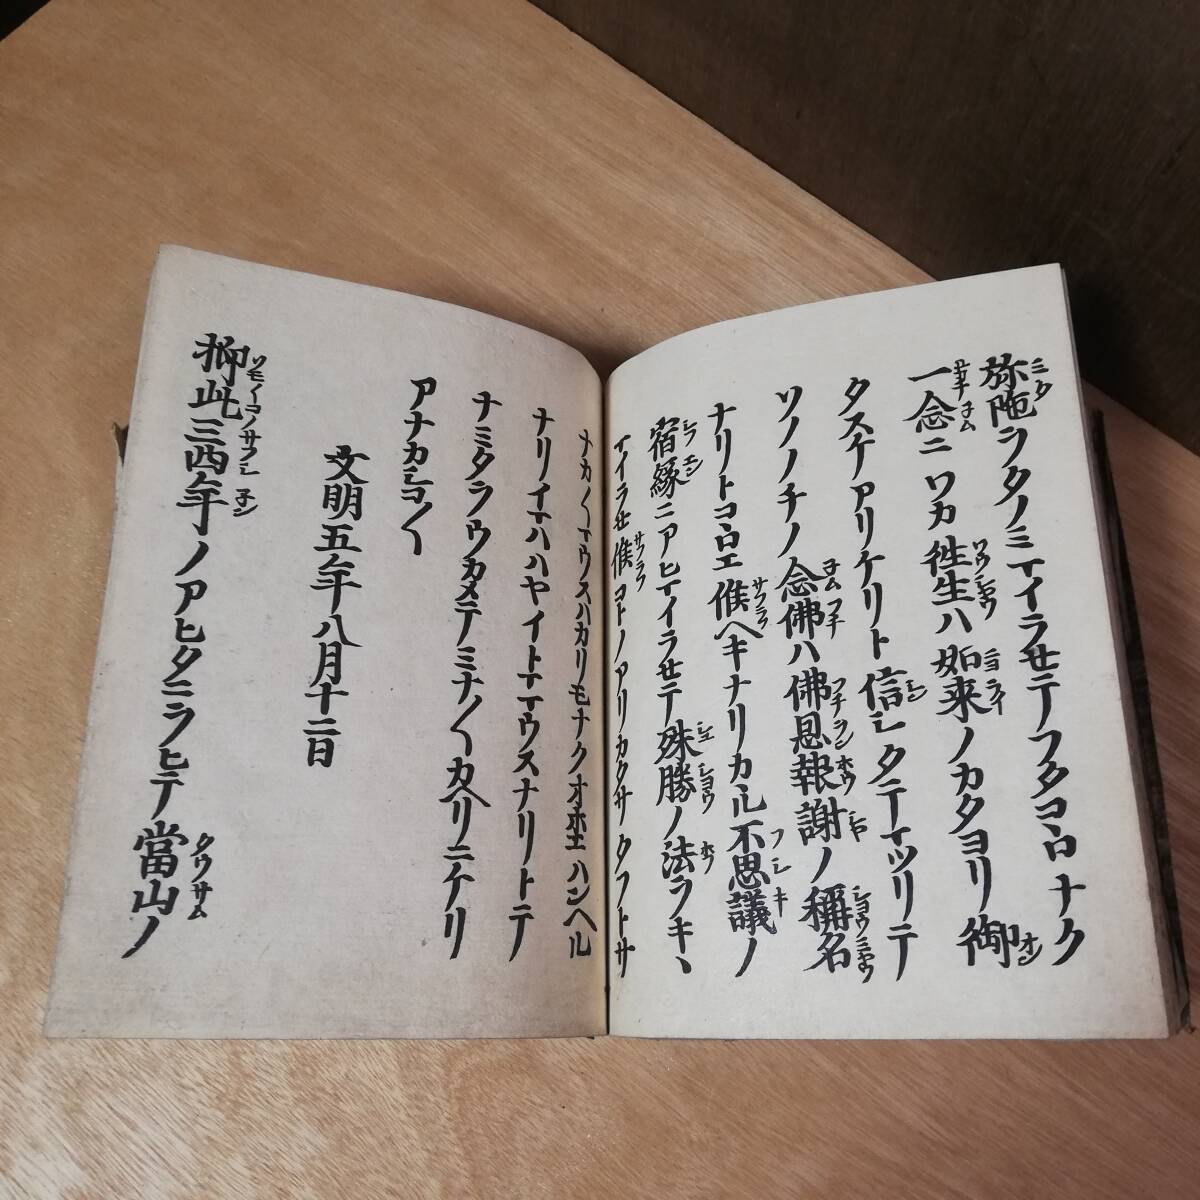 弥陀ヲタノミマイラセテフタコヽロナク
一念ニワカ往生ハ如来ノカタヨリ御
タスケアリケリト信シタテマツリテ
ソノノチノ念佛ハ佛恩報謝ノ稱名
ナリトコヽロエ候ヘキナリカヽル不思議ノ
宿縁ニアヒマイラセテ殊勝ノ法ヲキヽ
マイラセ候コトノアリカタサタフトサ
ナカ〱マウスハカリモナクオホエハンヘル
ナリイマハハヤイトママウスナリトテ
ナミタヲウカメテミナ〱カヘリニケリ
アナカシコ〱
文明五年八月十二日
抑此三四年ノアヒタニヲヒテ當山ノ